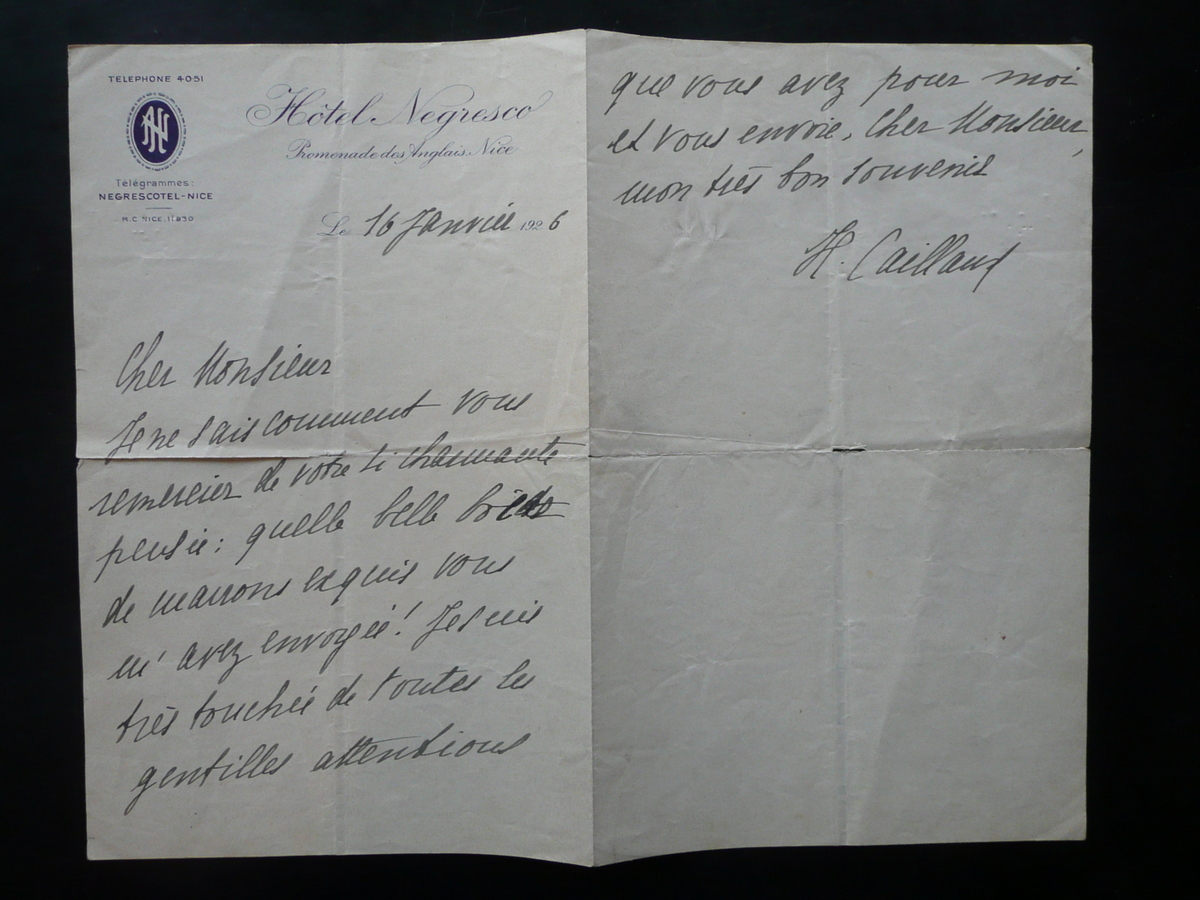 TELEPHONE 40-51
AN
Télégrammes:
NEGRESCOTEL-NICE
R.C. NICE 11.830
Hôtel Negresco
Promenade des Anglais. Nice
Le 16 Janvier 1926
Cher Monsieur
Je ne sais comment vous
remercier de votre si charmante
pensée: quelle belle boîte
de marrons exquis vous
m'avez envoyée! Je suis
très touchée de toutes les
gentilles attentions
que vous avez pour moi
et vous envoie, Cher Monsieur,
mon très bon souvenir
H. Caillaux